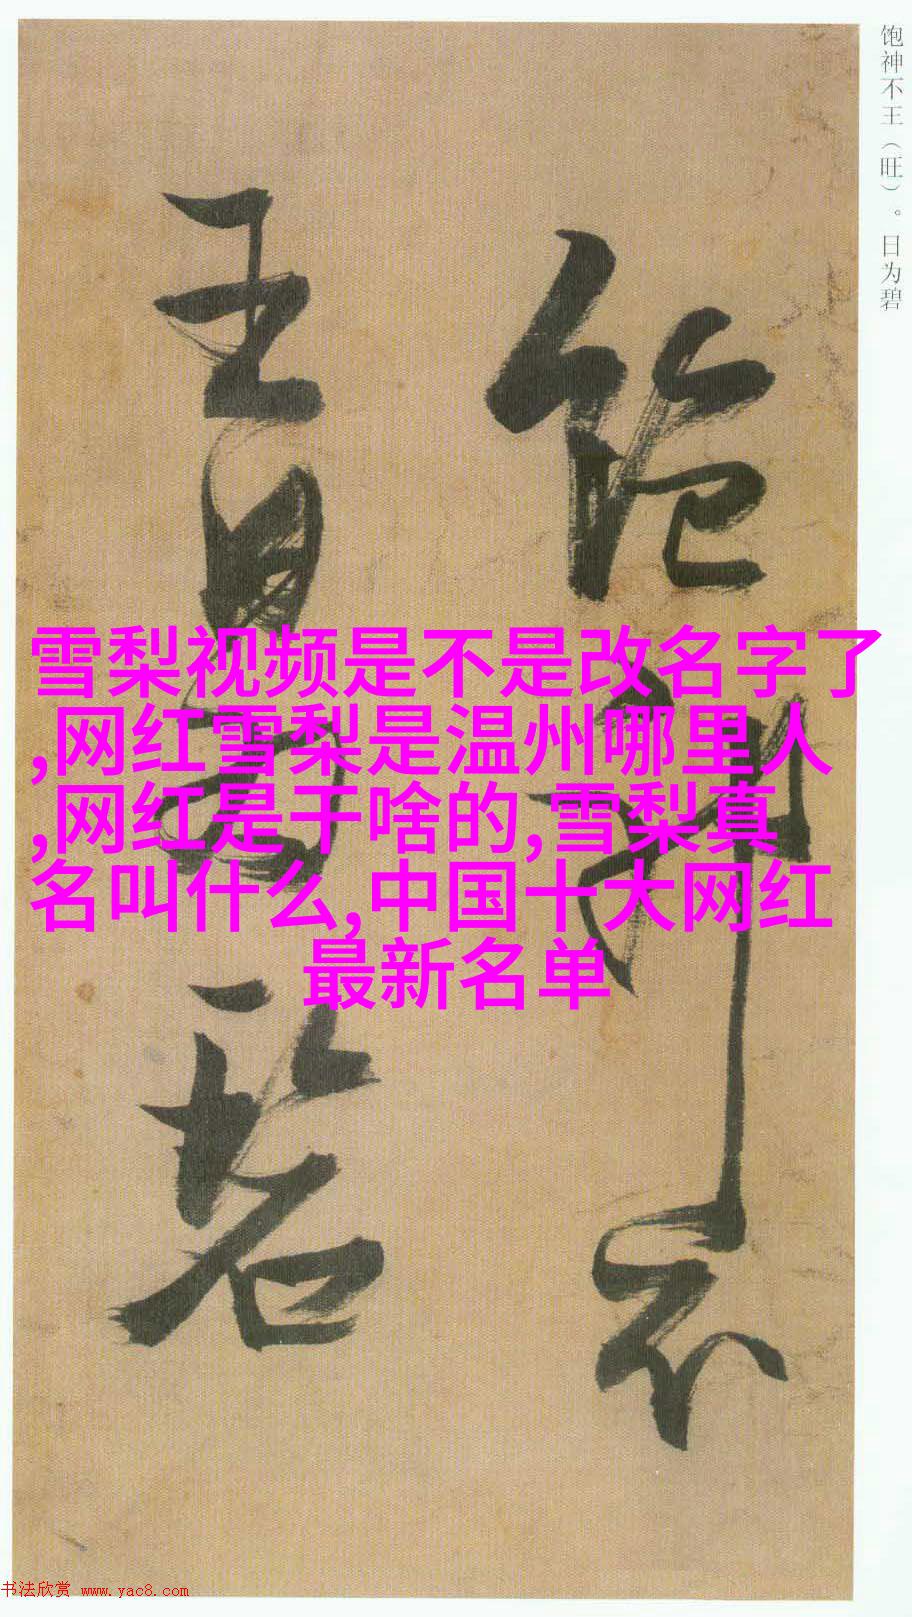 饱神不王（旺）。日为碧
饱神不
王日为碧
雪梨视频是不是改名字了
,网红雪梨是温州哪里人
,网红是干啥的,雪梨真
名叫什么,中国十大网红
最新名单
书法欣赏 www.yac8.com